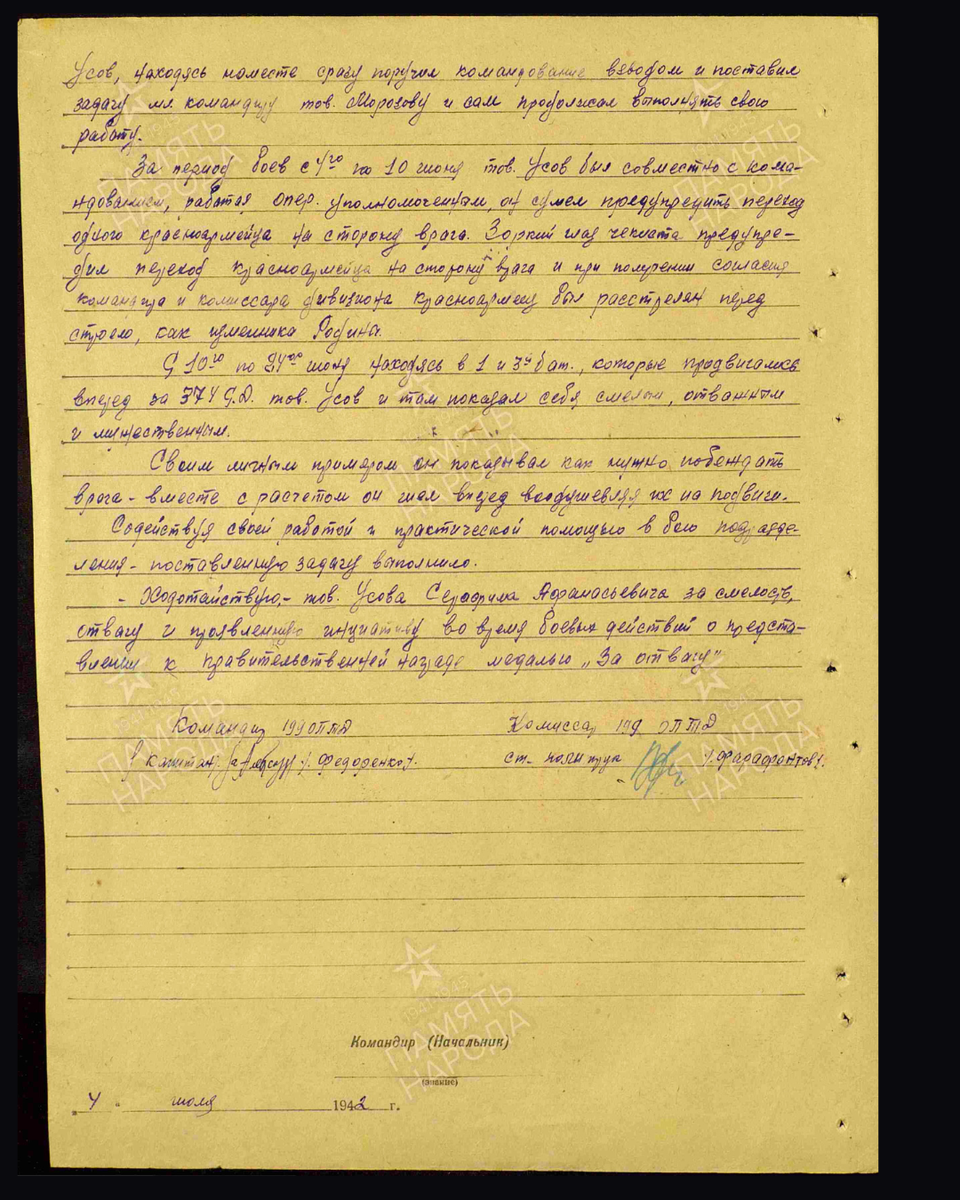 Усов, находясь наместе сразу поручил командование взводом и поставил
задачу мл. командиру тов. Морозову и сам продолжал выполнять свою
работу.
За период боев с 4го по 10 июня тов. Усов был совместно с кома-
ндованием, работая опер. уполномоченным, он сумел предупредить переход
одного красноармейца на сторону врага. Зоркий глаз чекиста предупре-
дил переход красноармейца на сторону врага и при получении согласия
командира и комиссара дивизиона красноармеец был расстрелян перед
строем, как изменника Родины.
С 10го по 24ое июня находясь в 1 и 3й бат., которые продвигались
вперед за 374 С.Д. тов. Усов и там показал себя смелым, отважным
и мужественным.
Своим личным примером он показывал как нужно побеждать
врага - вместе с расчетом он шел вперед воодушевляя их на подвиги.
Содействуя своей работой и практической помощью в бою подразде-
ления - поставленную задачу выполнило.
- Ходотайствую, - тов. Усова Серафима Афанасьевича за смелость,
отвагу и проявленную инциативу во время боевых действий о предста-
влении к правительственной награде медалью „За отвагу"
Командир 199 ОПТД Комиссар 199 ОПТД
Капитан: /Федоренко/. ст. политрук /Фарафонтов/.
ПАМЯТЬ
НАРОДА
1941-1945
Командир (Начальник)
(звание)
„4" июля 1942 г.